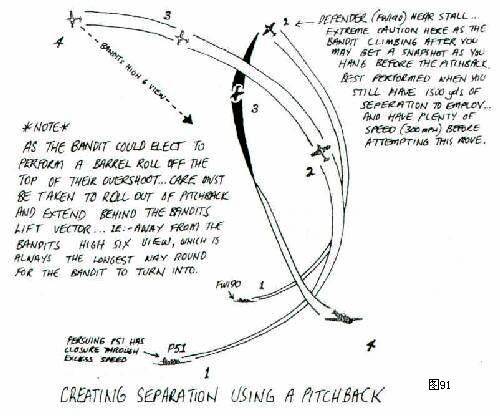 3
4
BANDITS HIGH 6 VIEW
2 ← DEFENDER (FW190) NEAR STALL...
EXTREME CAUTION HERE AS THE
BANDIT CLIMBING AFTER YOU
MAY GET A SNAPSHOT AS YOU
HANG BEFORE THE PITCHBACK.
BEST PERFORMED WHEN YOU
STILL HAVE 1500 yds OF
SEPERATION TO EMPLOY...
AND HAVE PLENTY OF
SPEED (300 MPH) BEFORE
ATTEMPTING THIS MOVE.
3
2
*NOTE*
AS THE BANDIT COULD ELECT TO
PERFORM A BARREL ROLL OFF THE
TOP OF THEIR OVERSHOOT... CARE MUST
BE TAKEN TO ROLL OUT OF PITCHBACK
AND EXTEND BEHIND THE BANDITS
LIFT VECTOR... IE:- AWAY FROM THE
BANDITS HIGH SIX VIEW, WHICH IS
ALWAYS THE LONGEST WAY ROUND
FOR THE BANDIT TO TURN INTO.
FW190
1
4
PERSUING P51 HAS
CLOSURE THROUGH
EXCESS SPEED
P51
1
CREATING SEPARATION USING A PITCHBACK
图91